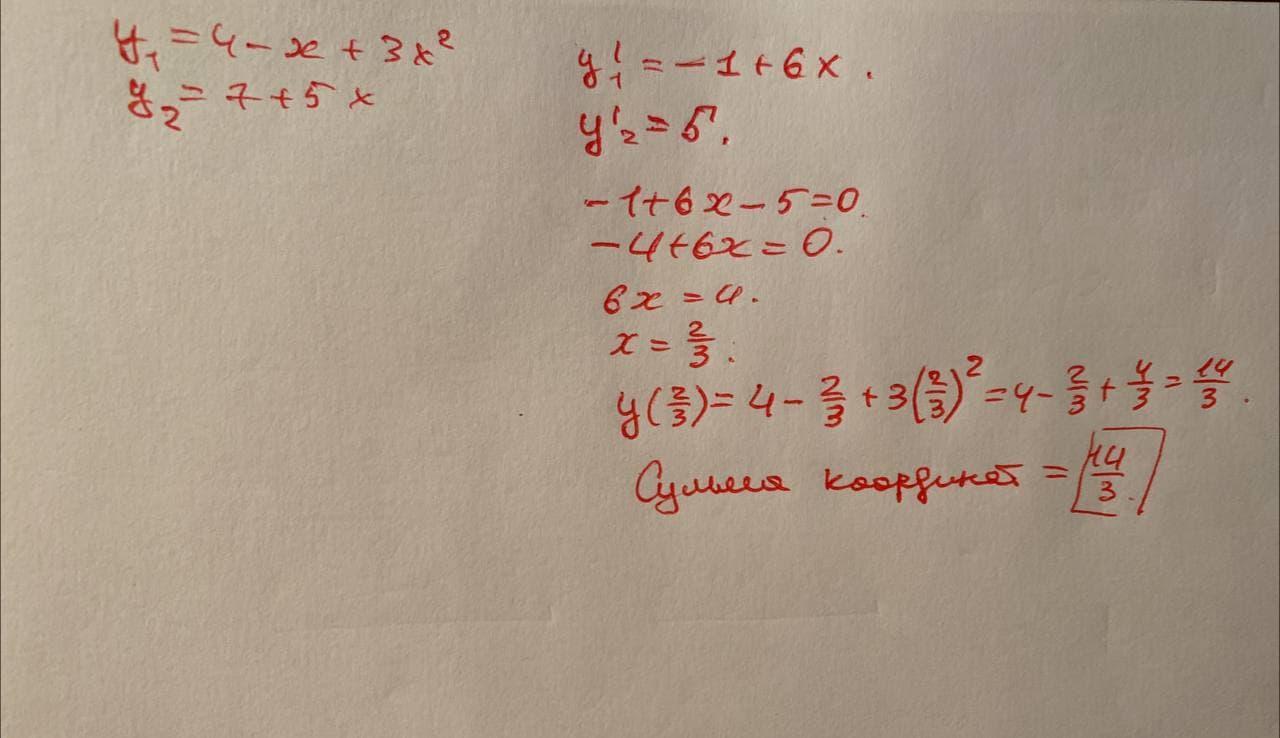 y₁ = 4 - x + 3x²
y₂ = 7 + 5x
y₁' = -1 + 6x.
y'₂ = 5.
-1 + 6x - 5 = 0.
-4 + 6x = 0.
6x = 4.
x = 2/3.
y(2/3) = 4 - 2/3 + 3(2/3)² = 4 - 2/3 + 4/3 = 14/3.
Сумма координат = 14/3.